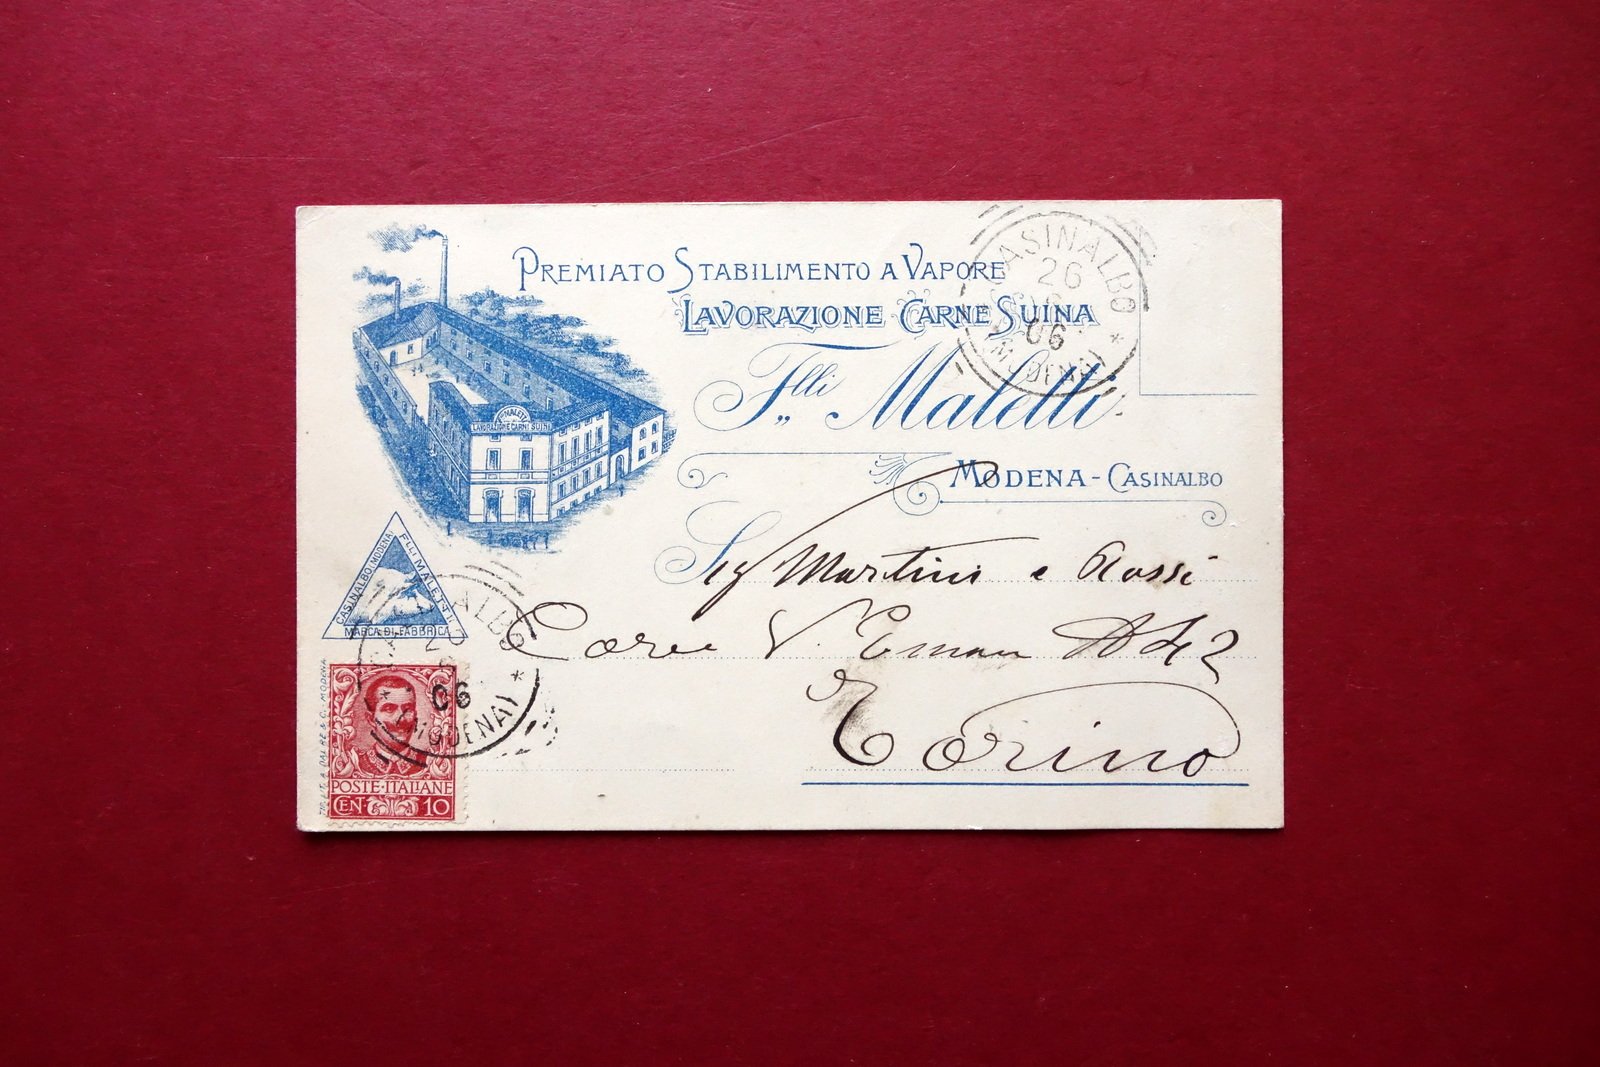 PREMIATO STABILIMENTO A VAPORE
LAVORAZIONE CARNE SUINA
F.lli Maletti
MODENA - CASINALBO
F.LLI MALETTI
LAVORAZIONE CARNI SUINE
CASINALBO (MODENA)
F.LLI MALETTI
MARCA DI FABBRICA
CASINALBO
26
06
(MODENA)
Sig Martini e Rossi
Corso V. Eman 42
Torino
06
(MODENA)
POSTE·ITALIANE
CEN. 10
MODENA